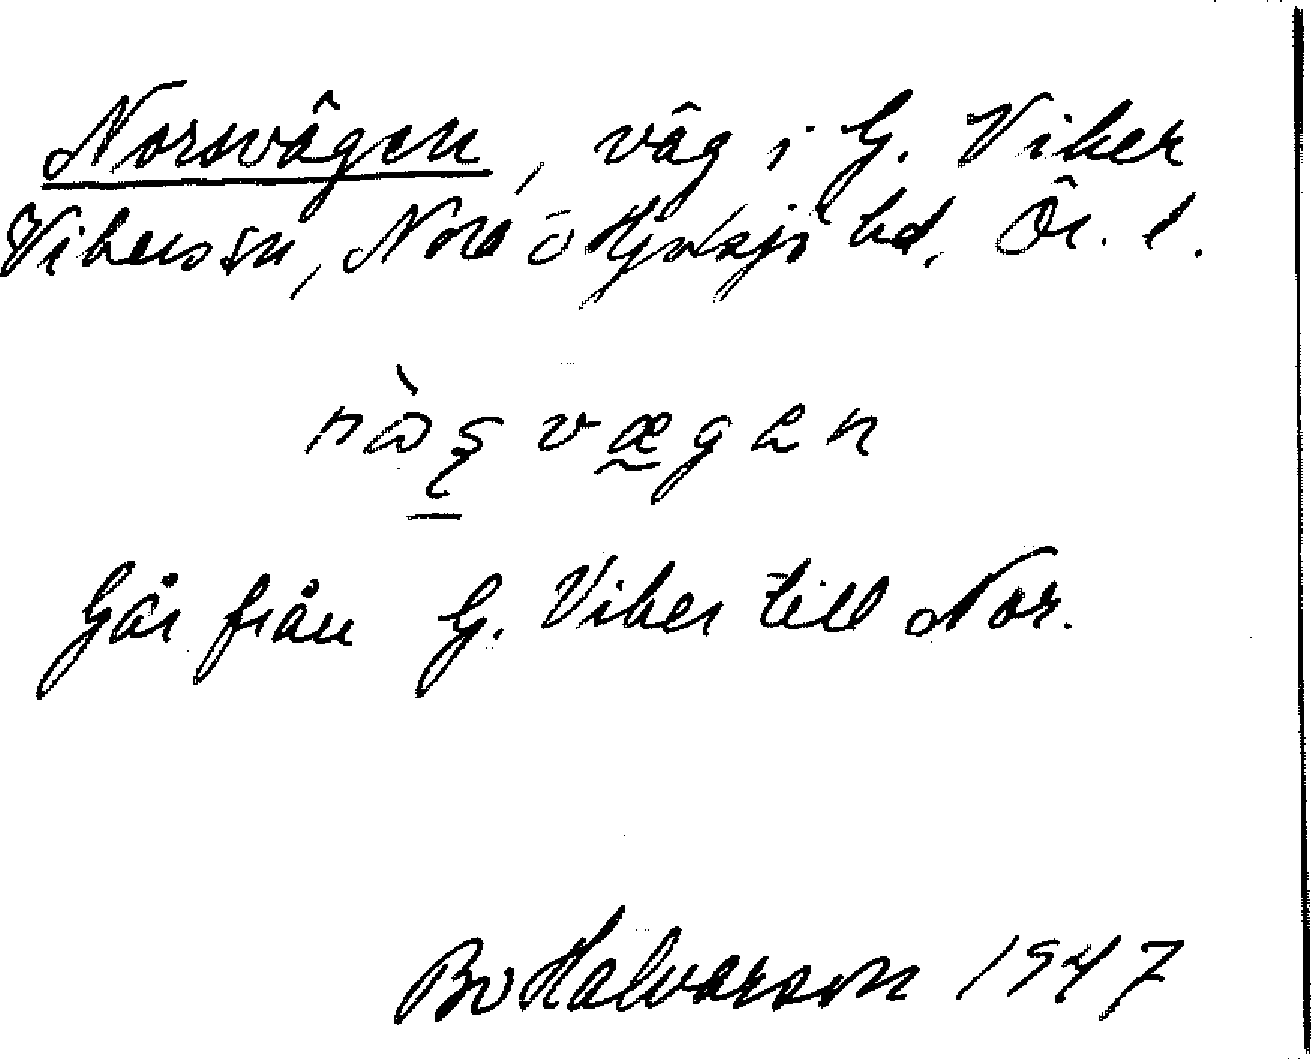 Norsvägen, väg i G. Viker
Vikers sn, Nora o Hjulsjö hd, Ör. l.
nàʂvægən
Går från G. Viker till Nor.
Bo Halvarson 1947